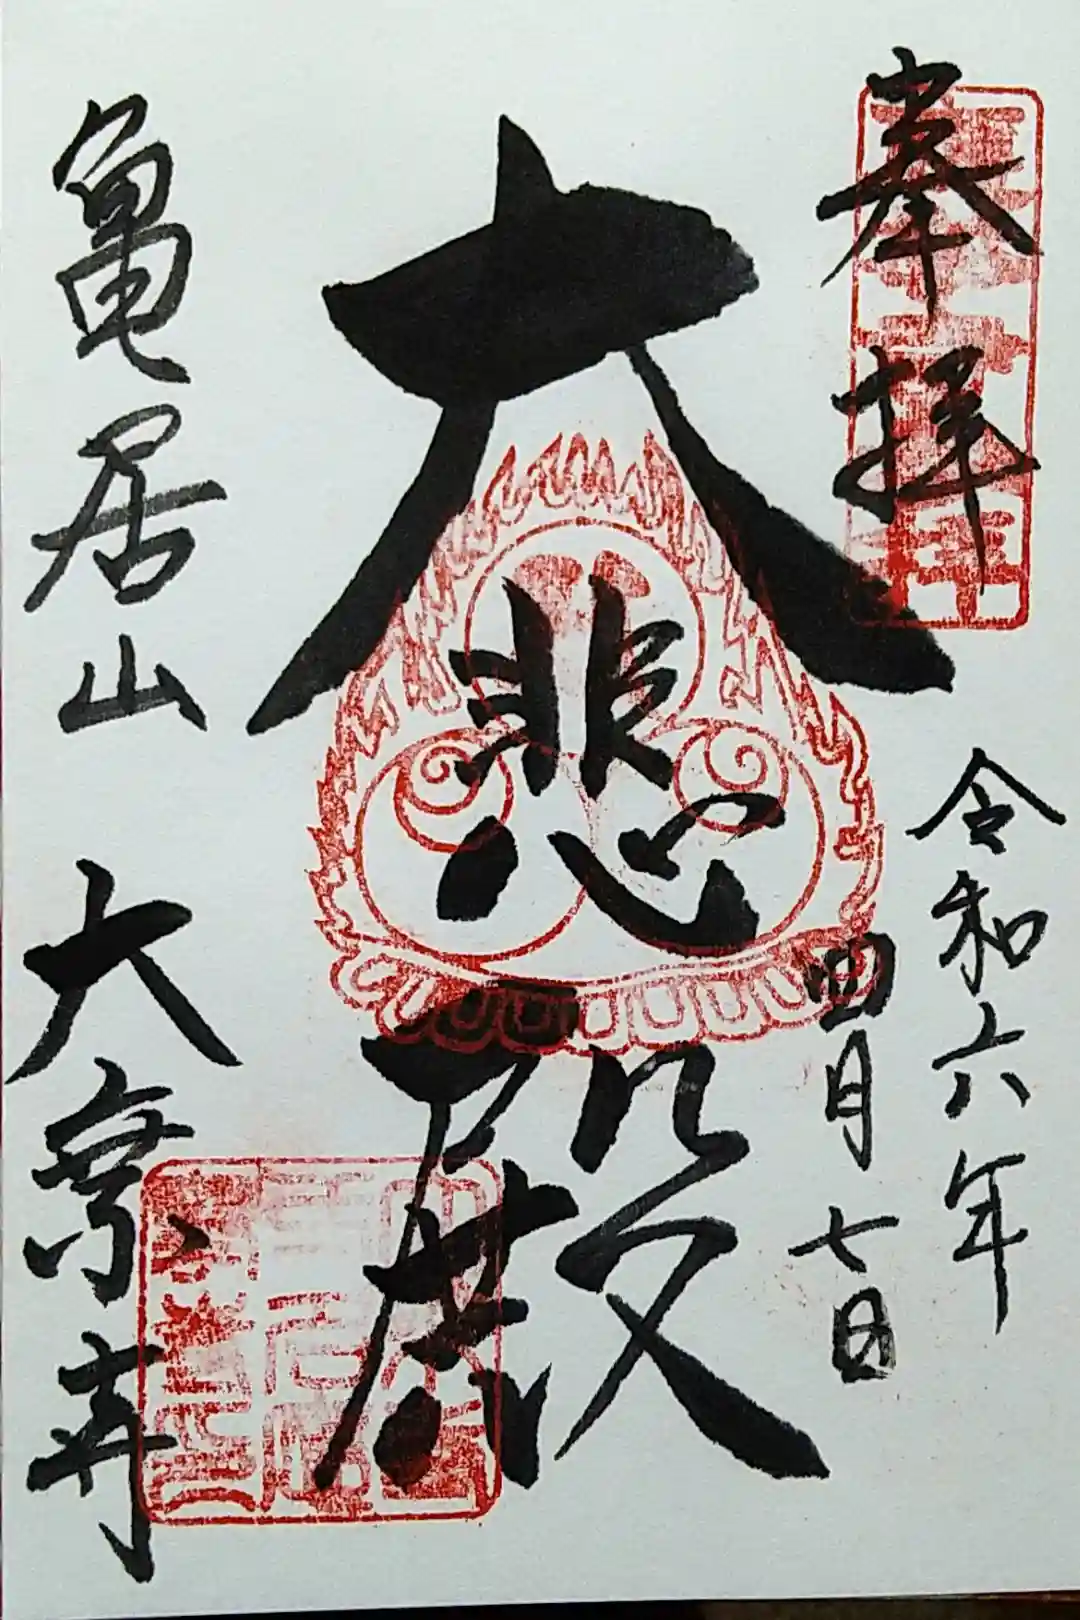 奉拝
令和六年
四月七日
大悲殿
亀居山
大樂寺